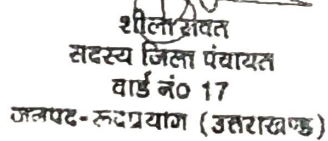 शीला रावत
सदस्य जिला पंचायत
वार्ड नं० 17
जनपद-रूद्रप्रयाग (उत्तराखण्ड)